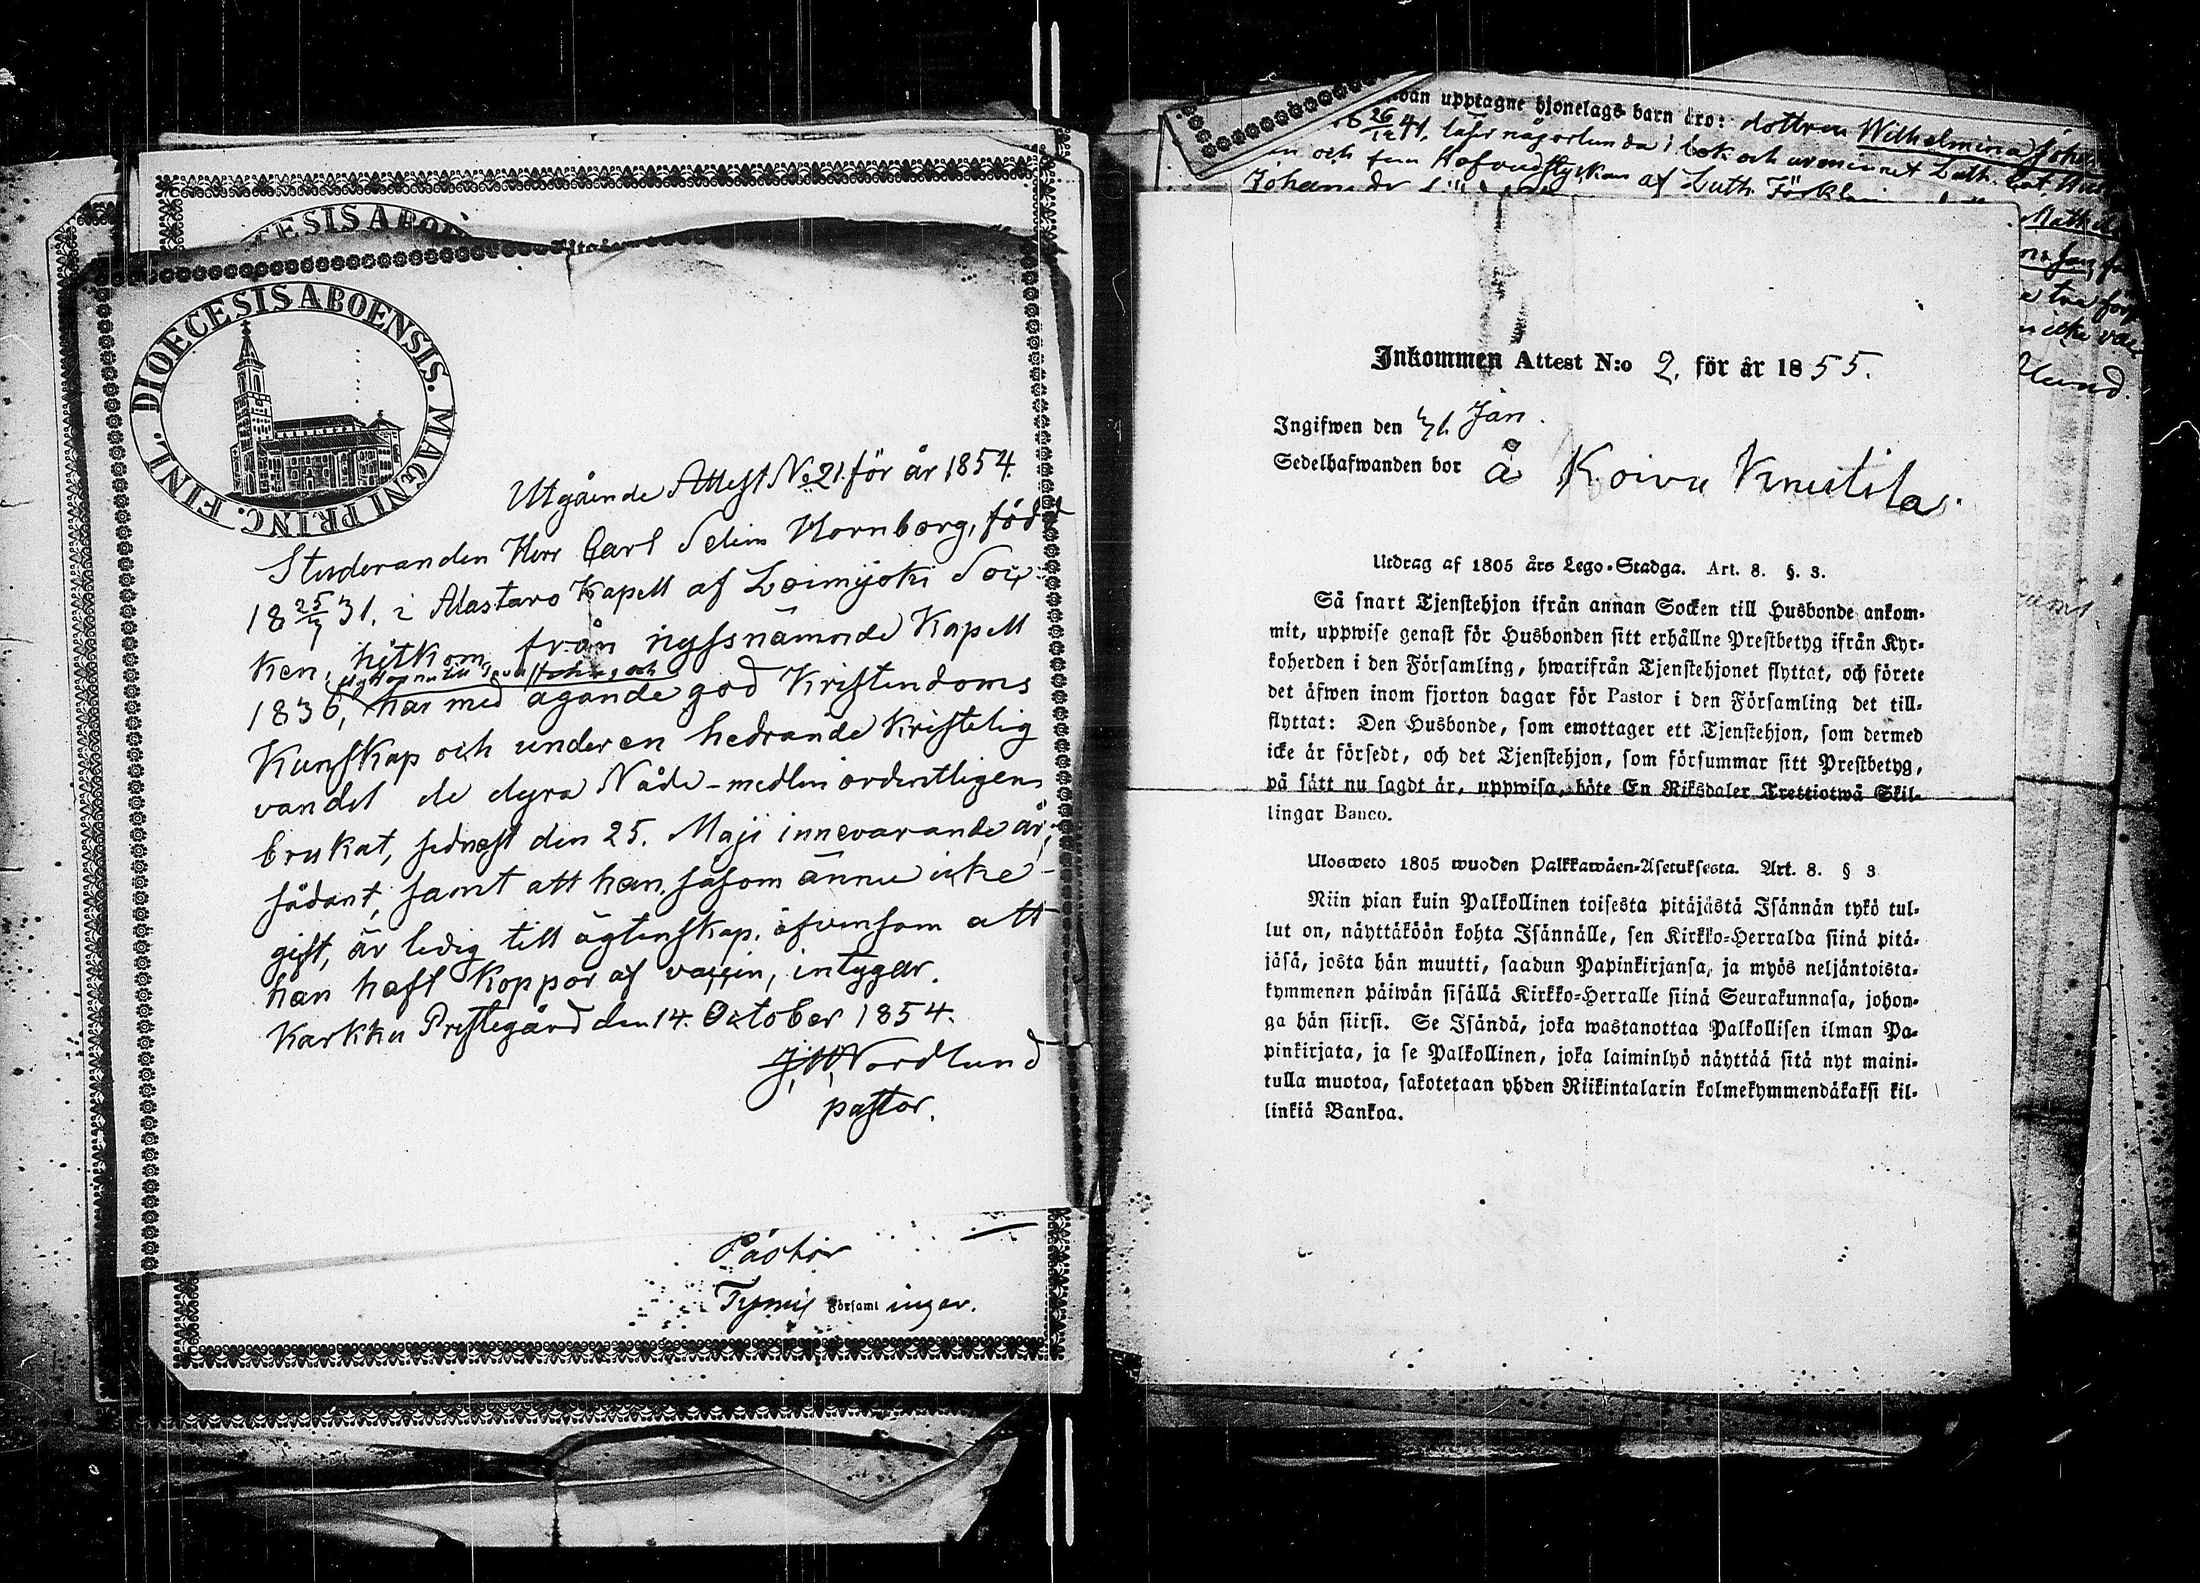 DIOECESIS ABOENSIS. MAGNI PRINC. FINL.
Utgående Attest No 21. för år 1854.
Studeranden Herr Carl Selim Hornborg, född
18 25/7 31. i Alastaro Kapell af Loimijoki Soc-
ken, hitkom från nyssnämnde Kapell
1836, har med ägande god Kristendoms
Kunskap och under en hedrande Kristelig
vandel de dyra Nåde-medlen ordentligen
brukat, sednast den 25. Maji innevarande år,
sådant, samt att han, såsom ännu icke
gift, är ledig till ägtenskap, äfvensom att
han haft Koppor af vaccin, intygar.
Karkku Prestegård den 14. October 1854.
Nordlund
pastor.
Pastor
Församl ingar.
upptagne hjonelags barn äro: dottren Wilhelmina
26/12 41, läser någorlunda i bok och urminnet Luth. Cat.
och fem Hofvudstycken af Luth.
Johan
Inkommen Attest N:o 2. för år 1855.
Ingifwen den 31. Jan.
Sedelhafwanden bor å Koivu Knuutila.
Utdrag af 1805 års Lego-Stadga. Art. 8. §. 3.
Så snart Tjenstehjon ifrån annan Socken till Husbonde ankom-
mit, uppwise genast för Husbonden sitt erhållne Prestbetyg ifrån Kyr-
koherden i den Församling, hwarifrån Tjenstehjonet flyttat, och förete
det äfwen inom fjorton dagar för Pastor i den Församling det till-
flyttat: Den Husbonde, som emottager ett Tjenstehjon, som dermed
icke är försedt, och det Tjenstehjon, som försummar sitt Prestbetyg,
på sätt nu sagdt är, uppwisa, böte En Riksdaler Trettiotwå Skil-
lingar Banco.
Ulosweto 1805 wuoden Palkkawäen-Asetuksesta. Art. 8. § 3
Niin pian kuin Palkollinen toisesta pitäjästä Isännän tykö tul-
lut on, näyttäköön kohta Isännälle, sen Kirkko-Herralda siinä pitä-
jäsä, josta hän muutti, saadun Papinkirjansa, ja myös neljäntoista-
kymmenen päiwän sisällä Kirkko-Herralle siinä Seurakunnasa, johon-
ga hän siirsi. Se Isändä, joka wastanottaa Palkollisen ilman Pa-
pinkirjata, ja se Palkollinen, joka laiminlyö näyttää sitä nyt maini-
tulla muotoa, sakotetaan yhden Riikintalarin kolmekymmendäkaksi kil-
linkiä Bankoa.